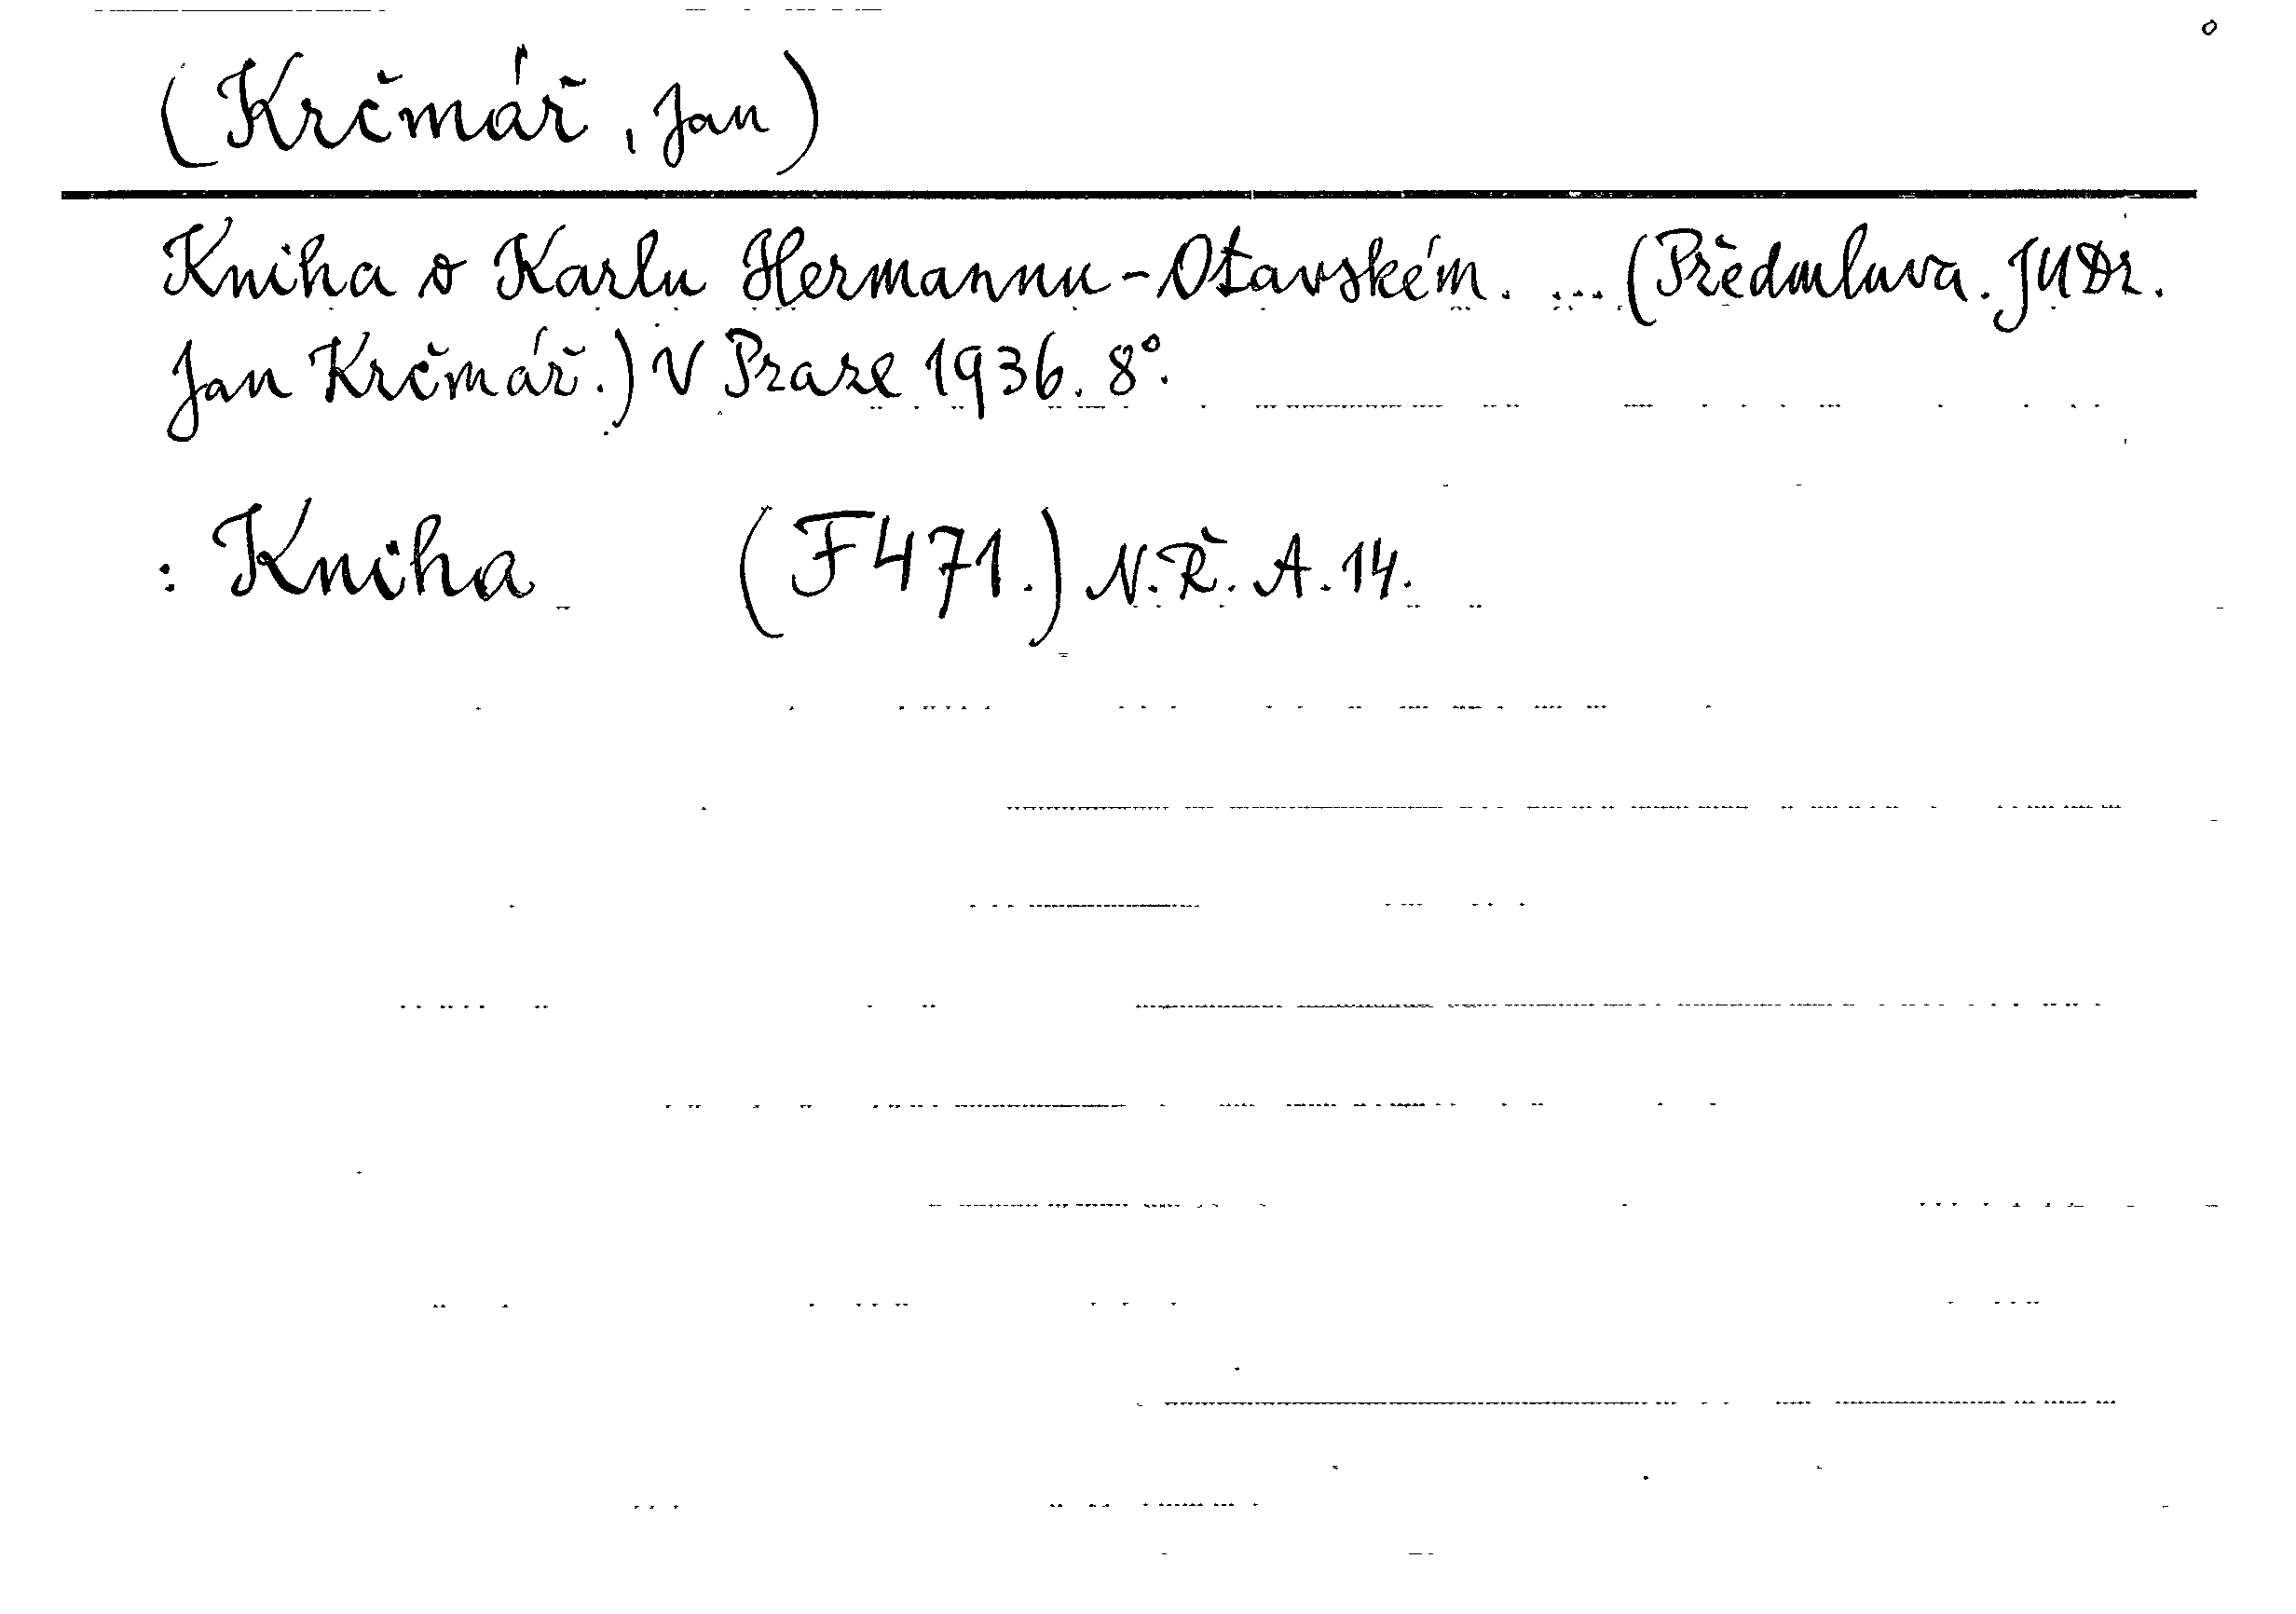 (Krčmář, Jan)
Kniha o Karlu Hermannu-Otavském. ... (Předmluva. JUDr.
Jan Krčmář.) V Praze 1936. 8°.
: Kniha (F471.) N.Ř. A. 14.